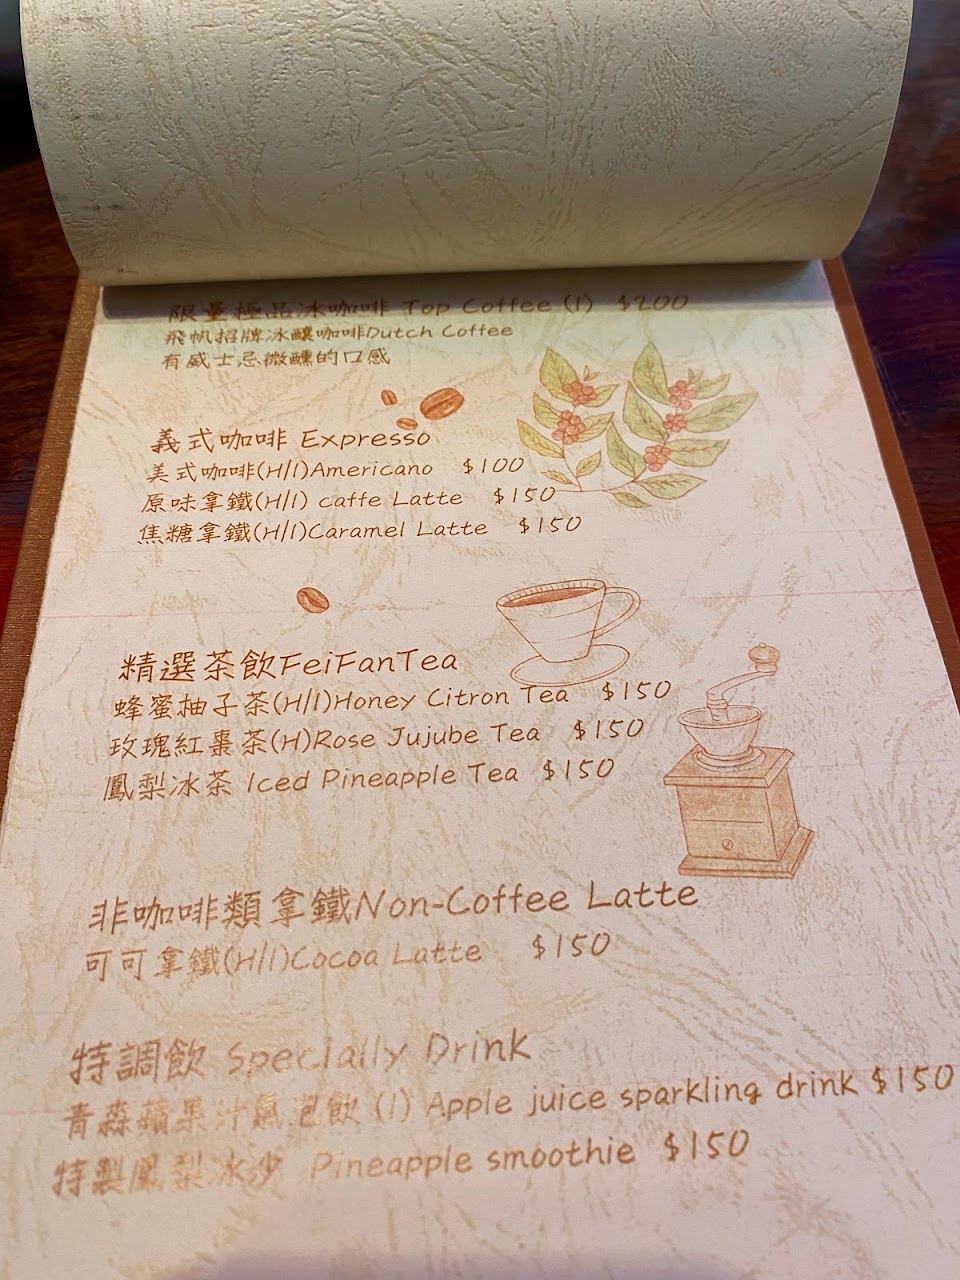 限量極品冰咖啡 Top Coffee (I) $200
飛帆招牌冰釀咖啡Dutch Coffee
有威士忌微醺的口感
義式咖啡 Expresso
美式咖啡(H/I)Americano $100
原味拿鐵(H/I) caffe Latte $150
焦糖拿鐵(H/I)Caramel Latte $150
精選茶飲FeiFanTea
蜂蜜柚子茶(H/I)Honey Citron Tea $150
玫瑰紅棗茶(H)Rose Jujube Tea $150
鳳梨冰茶 Iced Pineapple Tea $150
非咖啡類拿鐵Non-Coffee Latte
可可拿鐵(H/I)Cocoa Latte $150
特調飲 Specially Drink
青森蘋果汁氣泡飲 (I) Apple juice sparkling drink $150
特製鳳梨冰沙 Pineapple smoothie $150